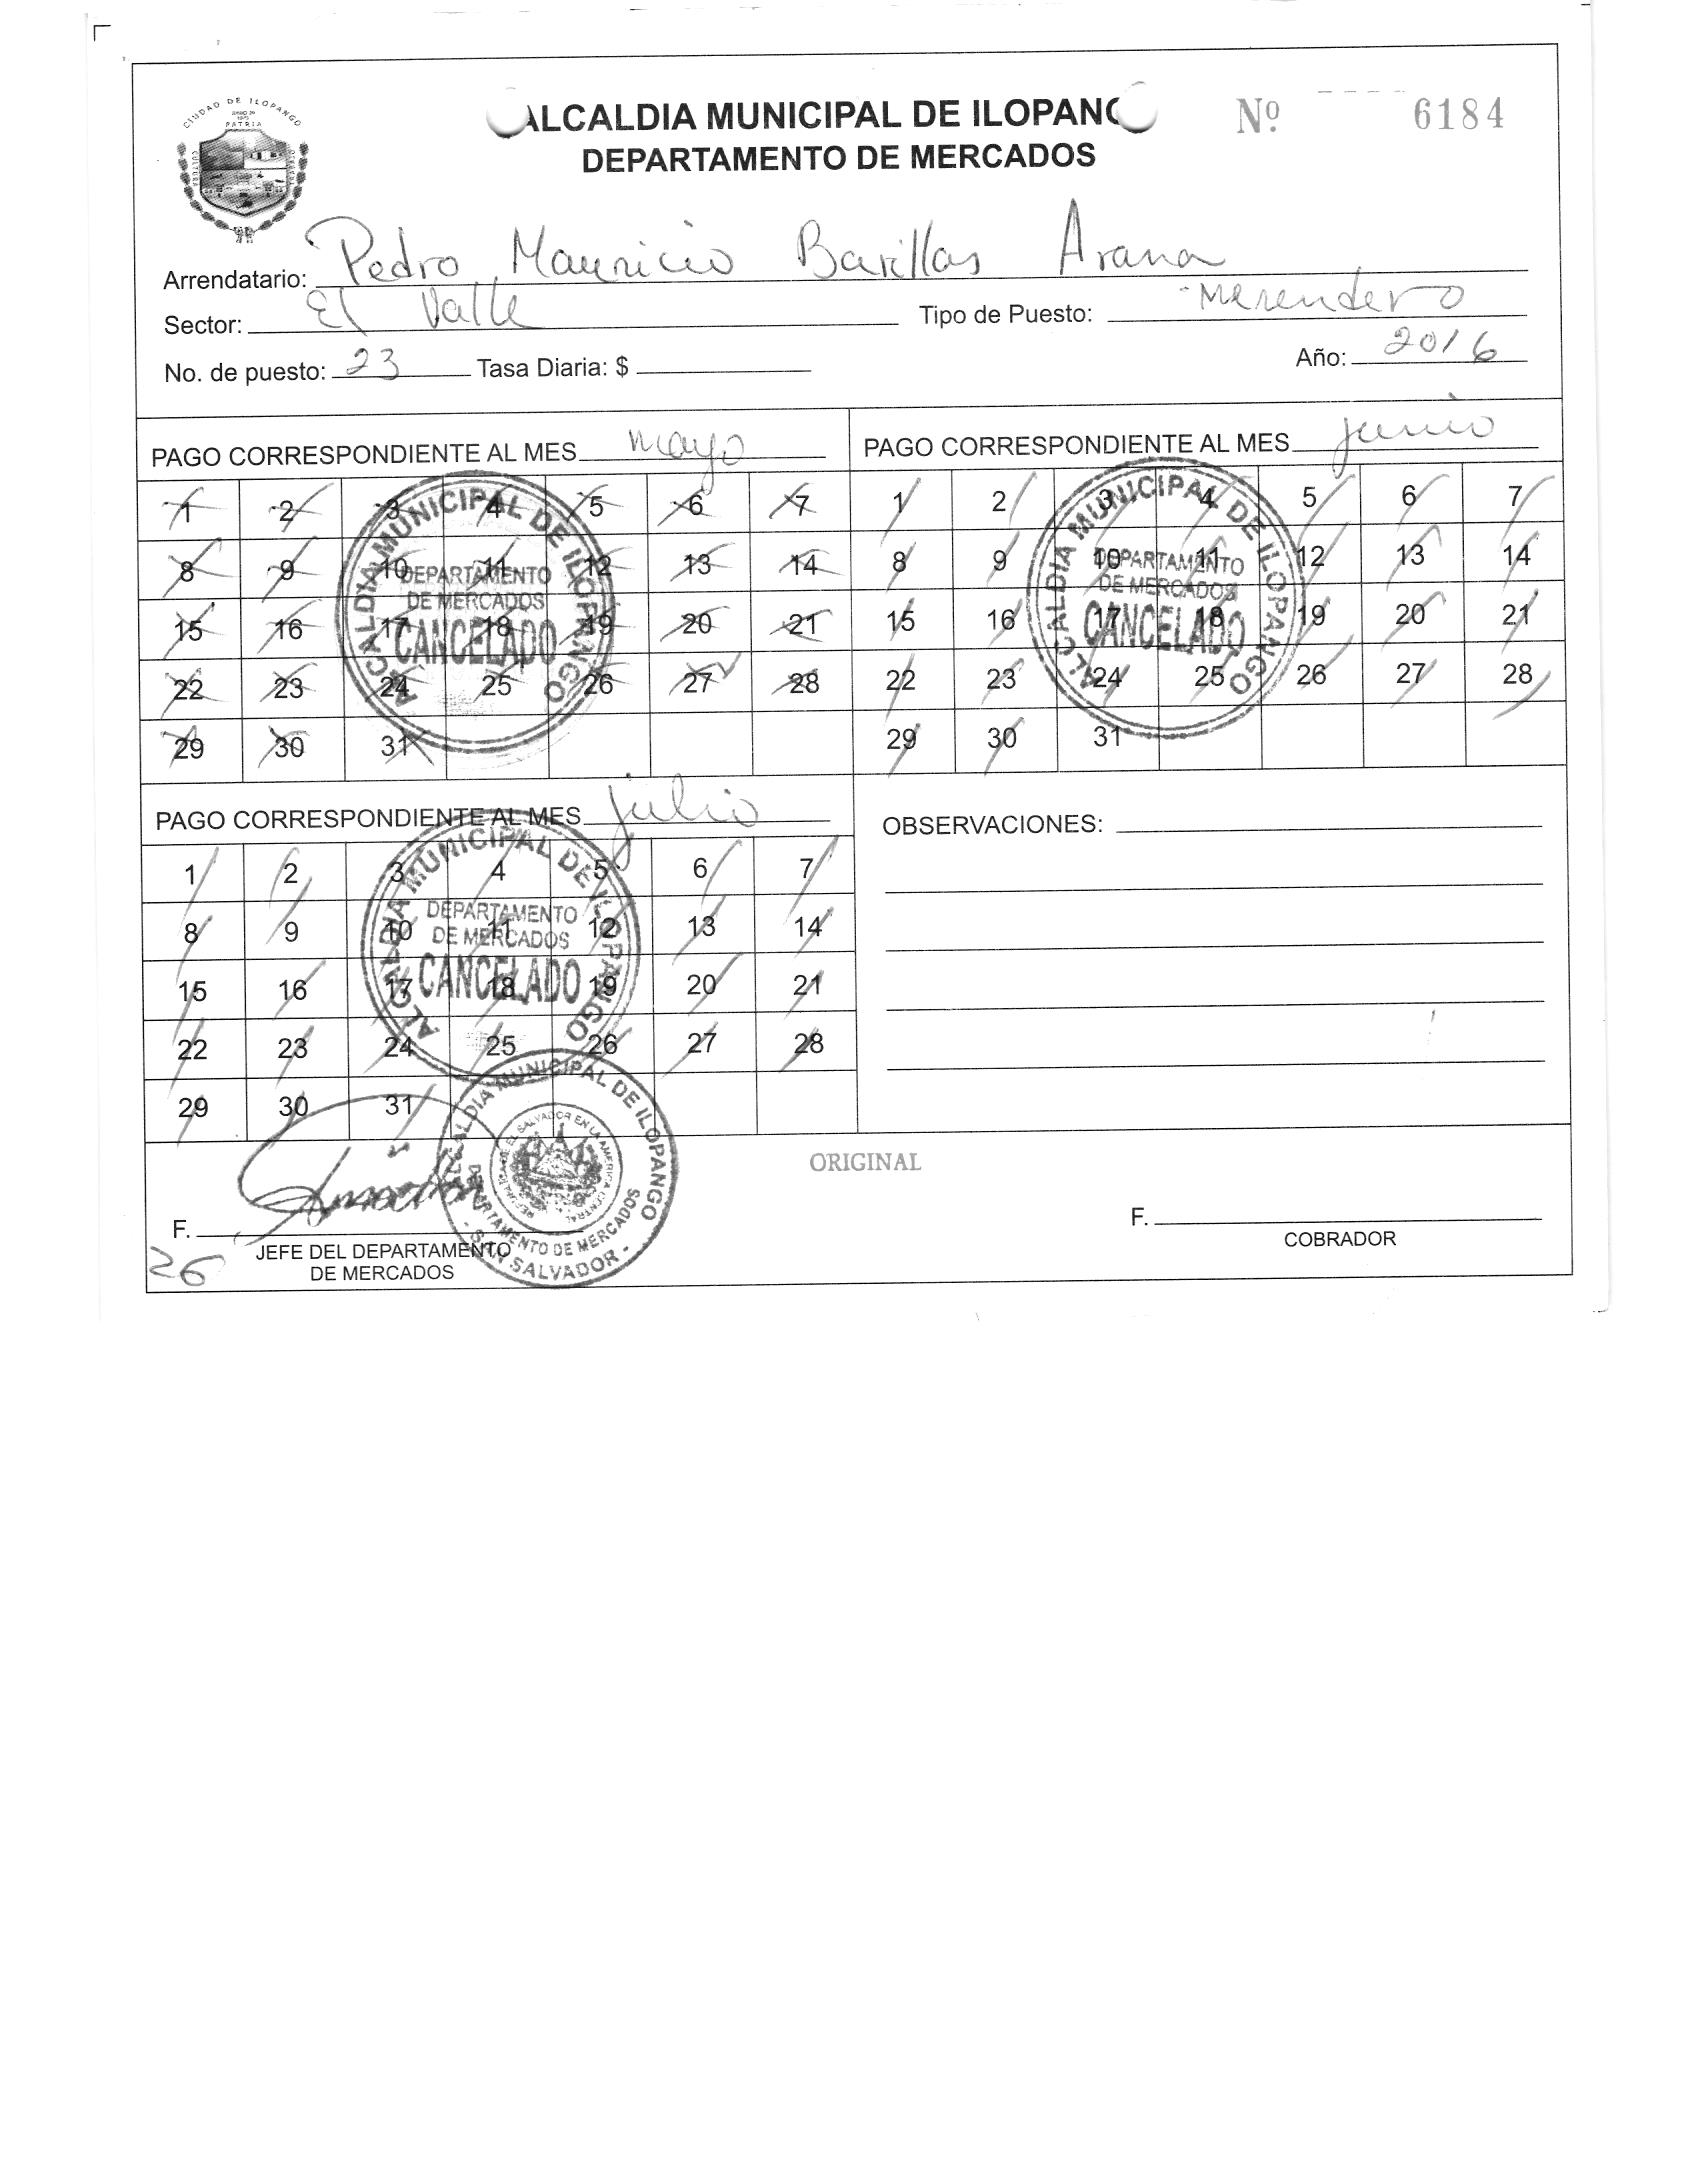 ALCALDIA MUNICIPAL DE ILOPANGO Nº 6184
DEPARTAMENTO DE MERCADOS
CIUDAD DE ILOPANGO
PATRIA
CULTURA
Arrendatario: Pedro Mauricio Barillas Arana
Sector: El Valle Tipo de Puesto: Merendero
No. de puesto: 23 Tasa Diaria: $ Año: 2016
PAGO CORRESPONDIENTE AL MES mayo
1 2 3 4 5 6 7
8 9 10 11 12 13 14
15 16 17 18 19 20 21
22 23 24 25 26 27 28
29 30 31
ALCALDIA MUNICIPAL DE ILOPANGO
DEPARTAMENTO
DE MERCADOS
CANCELADO
PAGO CORRESPONDIENTE AL MES junio
1 2 3 4 5 6 7
8 9 10 11 12 13 14
15 16 17 18 19 20 21
22 23 24 25 26 27 28
29 30 31
ALCALDIA MUNICIPAL DE ILOPANGO
DEPARTAMENTO
DE MERCADOS
CANCELADO
PAGO CORRESPONDIENTE AL MES julio
1 2 3 4 5 6 7
8 9 10 11 12 13 14
15 16 17 18 19 20 21
22 23 24 25 26 27 28
29 30 31
ALCALDIA MUNICIPAL DE ILOPANGO
DEPARTAMENTO
DE MERCADOS
CANCELADO
OBSERVACIONES:
ORIGINAL
ALCALDIA MUNICIPAL DE ILOPANGO
REPUBLICA DE EL SALVADOR EN LA AMERICA CENTRAL
DEPARTAMENTO DE MERCADOS
- SAN SALVADOR -
F.
JEFE DEL DEPARTAMENTO
DE MERCADOS
26
F.
COBRADOR